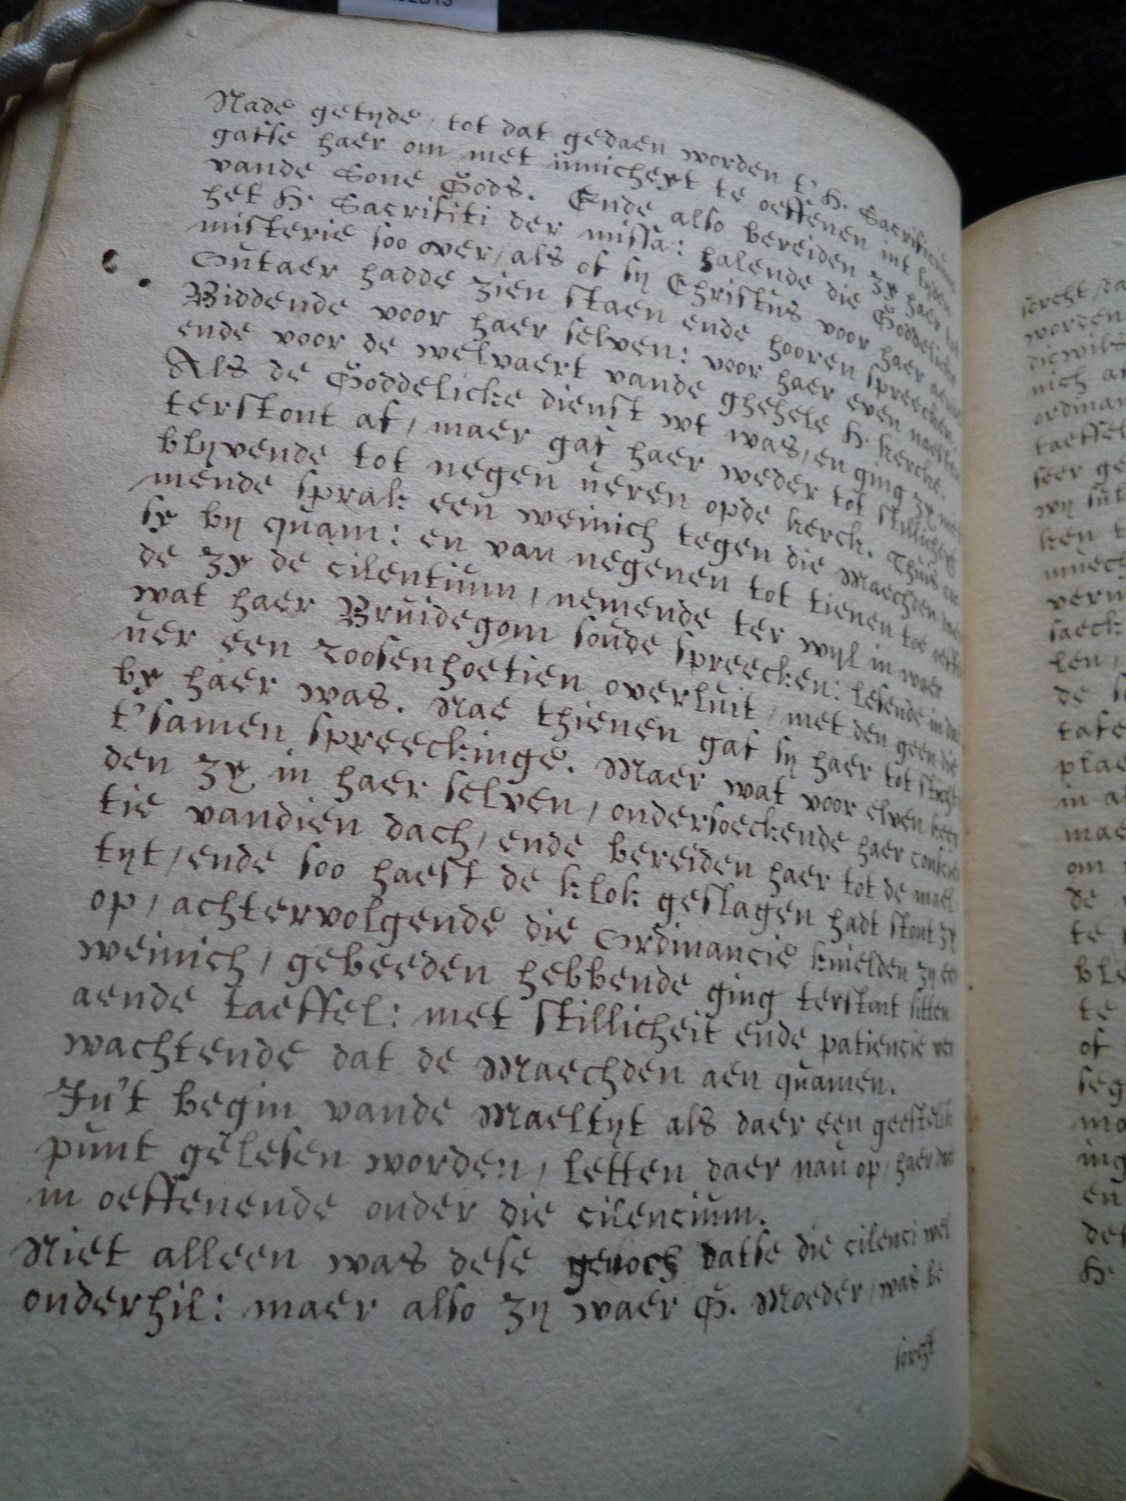 Nade getyde, tot dat gedaen worden t' H. Sacrificium
gafse haer om met innicheyt te oeffenen int lyden
vande Sone Gods. Ende also bereiden zy haer tot
het H. Sacrifiti der missa: halende die Goddelicke
misterie soo over, als of sy Christus voor haer
Outaer hadde zien staen ende hooren spreecken.
Biddende voor haer selven: voor haer even naesten
ende voor de welvaert vande ghehele H. Kercke.
Als de Goddelicke dienst wt was, en ging zy niet
terstont af, maer gaf haer weder tot stillicheyt
blyvende tot negen ueren opde kerck. Thuis co
mende sprak een weinich tegen die Maechden
sy by quam: en van negenen tot tienen toe oeffe
de zy de cilentium, nemende ter wyl in waer
wat haer Bruidegom soude spreecken: lesende in dat
uer een roosenhoetien overluit, met den geen die
by haer was. Nae thienen gaf sy haer tot sticht
t'samen spreeckinge. Maer wat voor elven keer
den zy in haer selven, ondersoeckende haer consien
tie vandien dach, ende bereiden haer tot de mael
tyt, ende soo haest de klok geslagen hadt stont zy
op, achtervolgende die Ordinancie knielden zy een
weinich, gebeeden hebbende ging terstont sitten
aende taeffel: met stillicheit ende patiencie ver
wachtende dat de Maechden aen quamen.
In't begin vande Maeltyt als daer een geestelik
punt gelesen worden, letten daer nau op, haer daer
in oeffenende onder die cilencium.
Niet alleen was dese genoch datse die cilenci wel
onderhil: maer also zy waer G. Moeder, was be
sorcht
sorcht
worden
diewils
nich
ordinan
taeffel
seer ge
wy
ken
verm
saeck
len,
de
tafe
plae
in
mae
om
de
te
ble
te
of
seg
mo
ing
en
def
H.